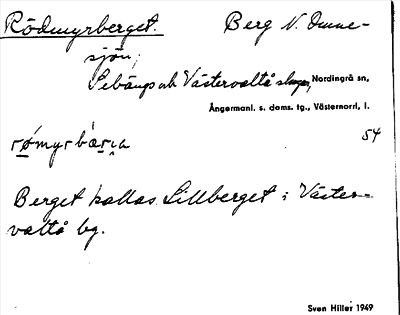 Rödmyrberget. Berg N. Dunne-
sjön;
Sebånga och Västervaltå skogar, Nordingrå sn,
Ångermanl. s. doms. tg., Västernorrl. l.
54
Berget kallas Lillberget i Väster-
valtå by.
Sven Hiller 1949